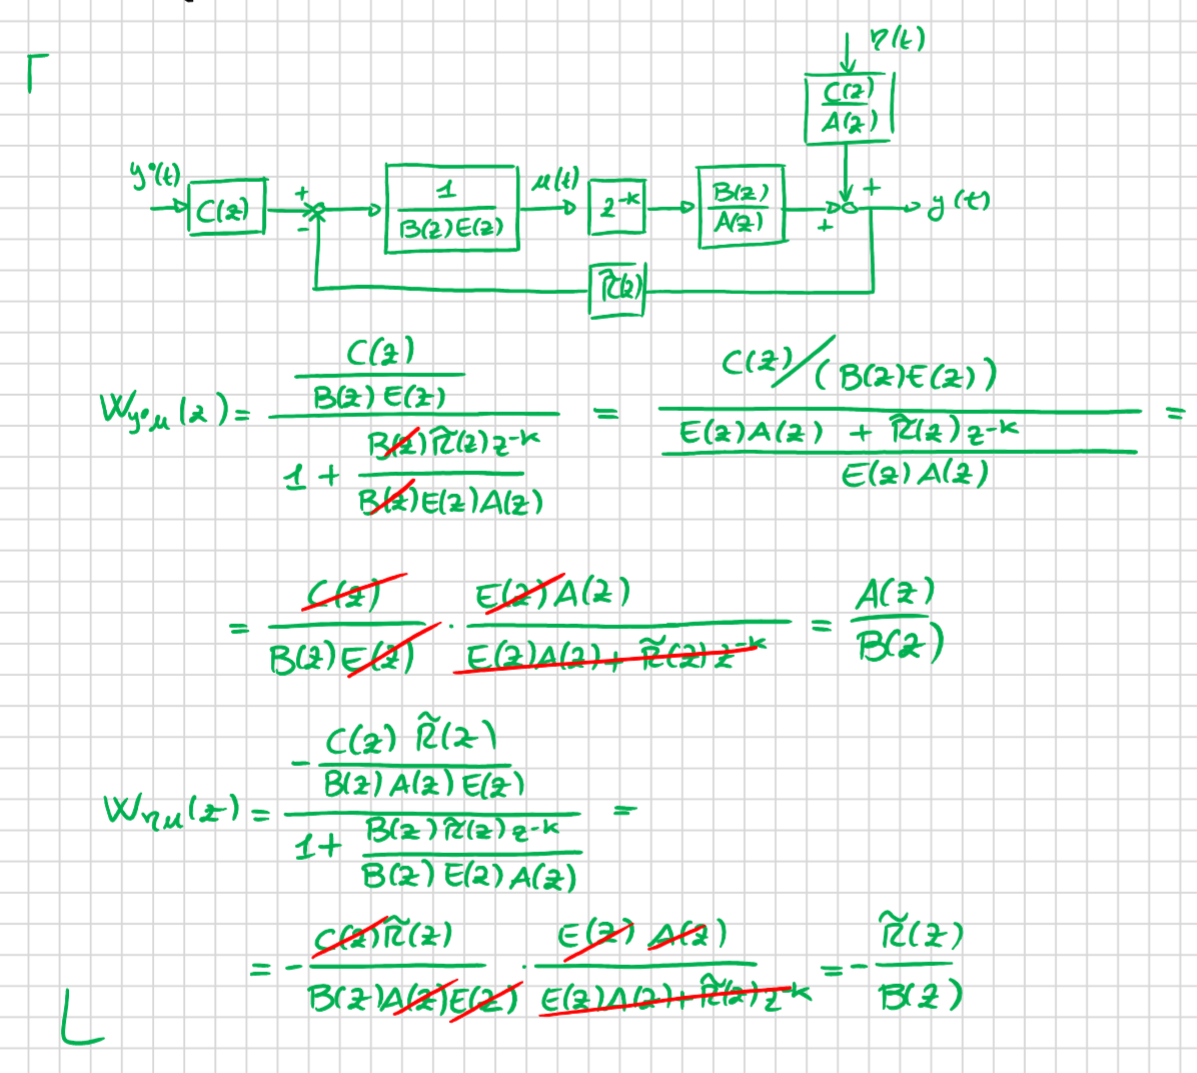 η(t)
C(z)/A(z)
y°(t) C(z) + - 1/(B(z)E(z)) μ(t) z^-k B(z)/A(z) + + y(t)
R̃(z)
W_y°μ(z) = (C(z)/(B(z)E(z))) / (1 + (B(z)R̃(z)z^-k)/(B(z)E(z)A(z))) = (C(z)/(B(z)E(z))) / ((E(z)A(z) + R̃(z)z^-k)/(E(z)A(z))) =
= C(z)/(B(z)E(z)) · E(z)A(z)/(E(z)A(z) + R̃(z)z^-k) = A(z)/B(z)
W_ημ(z) = (- C(z)R̃(z)/(B(z)A(z)E(z))) / (1 + (B(z)R̃(z)z^-k)/(B(z)E(z)A(z))) =
= - C(z)R̃(z)/(B(z)A(z)E(z)) · E(z)A(z)/(E(z)A(z) + R̃(z)z^-k) = - R̃(z)/B(z)